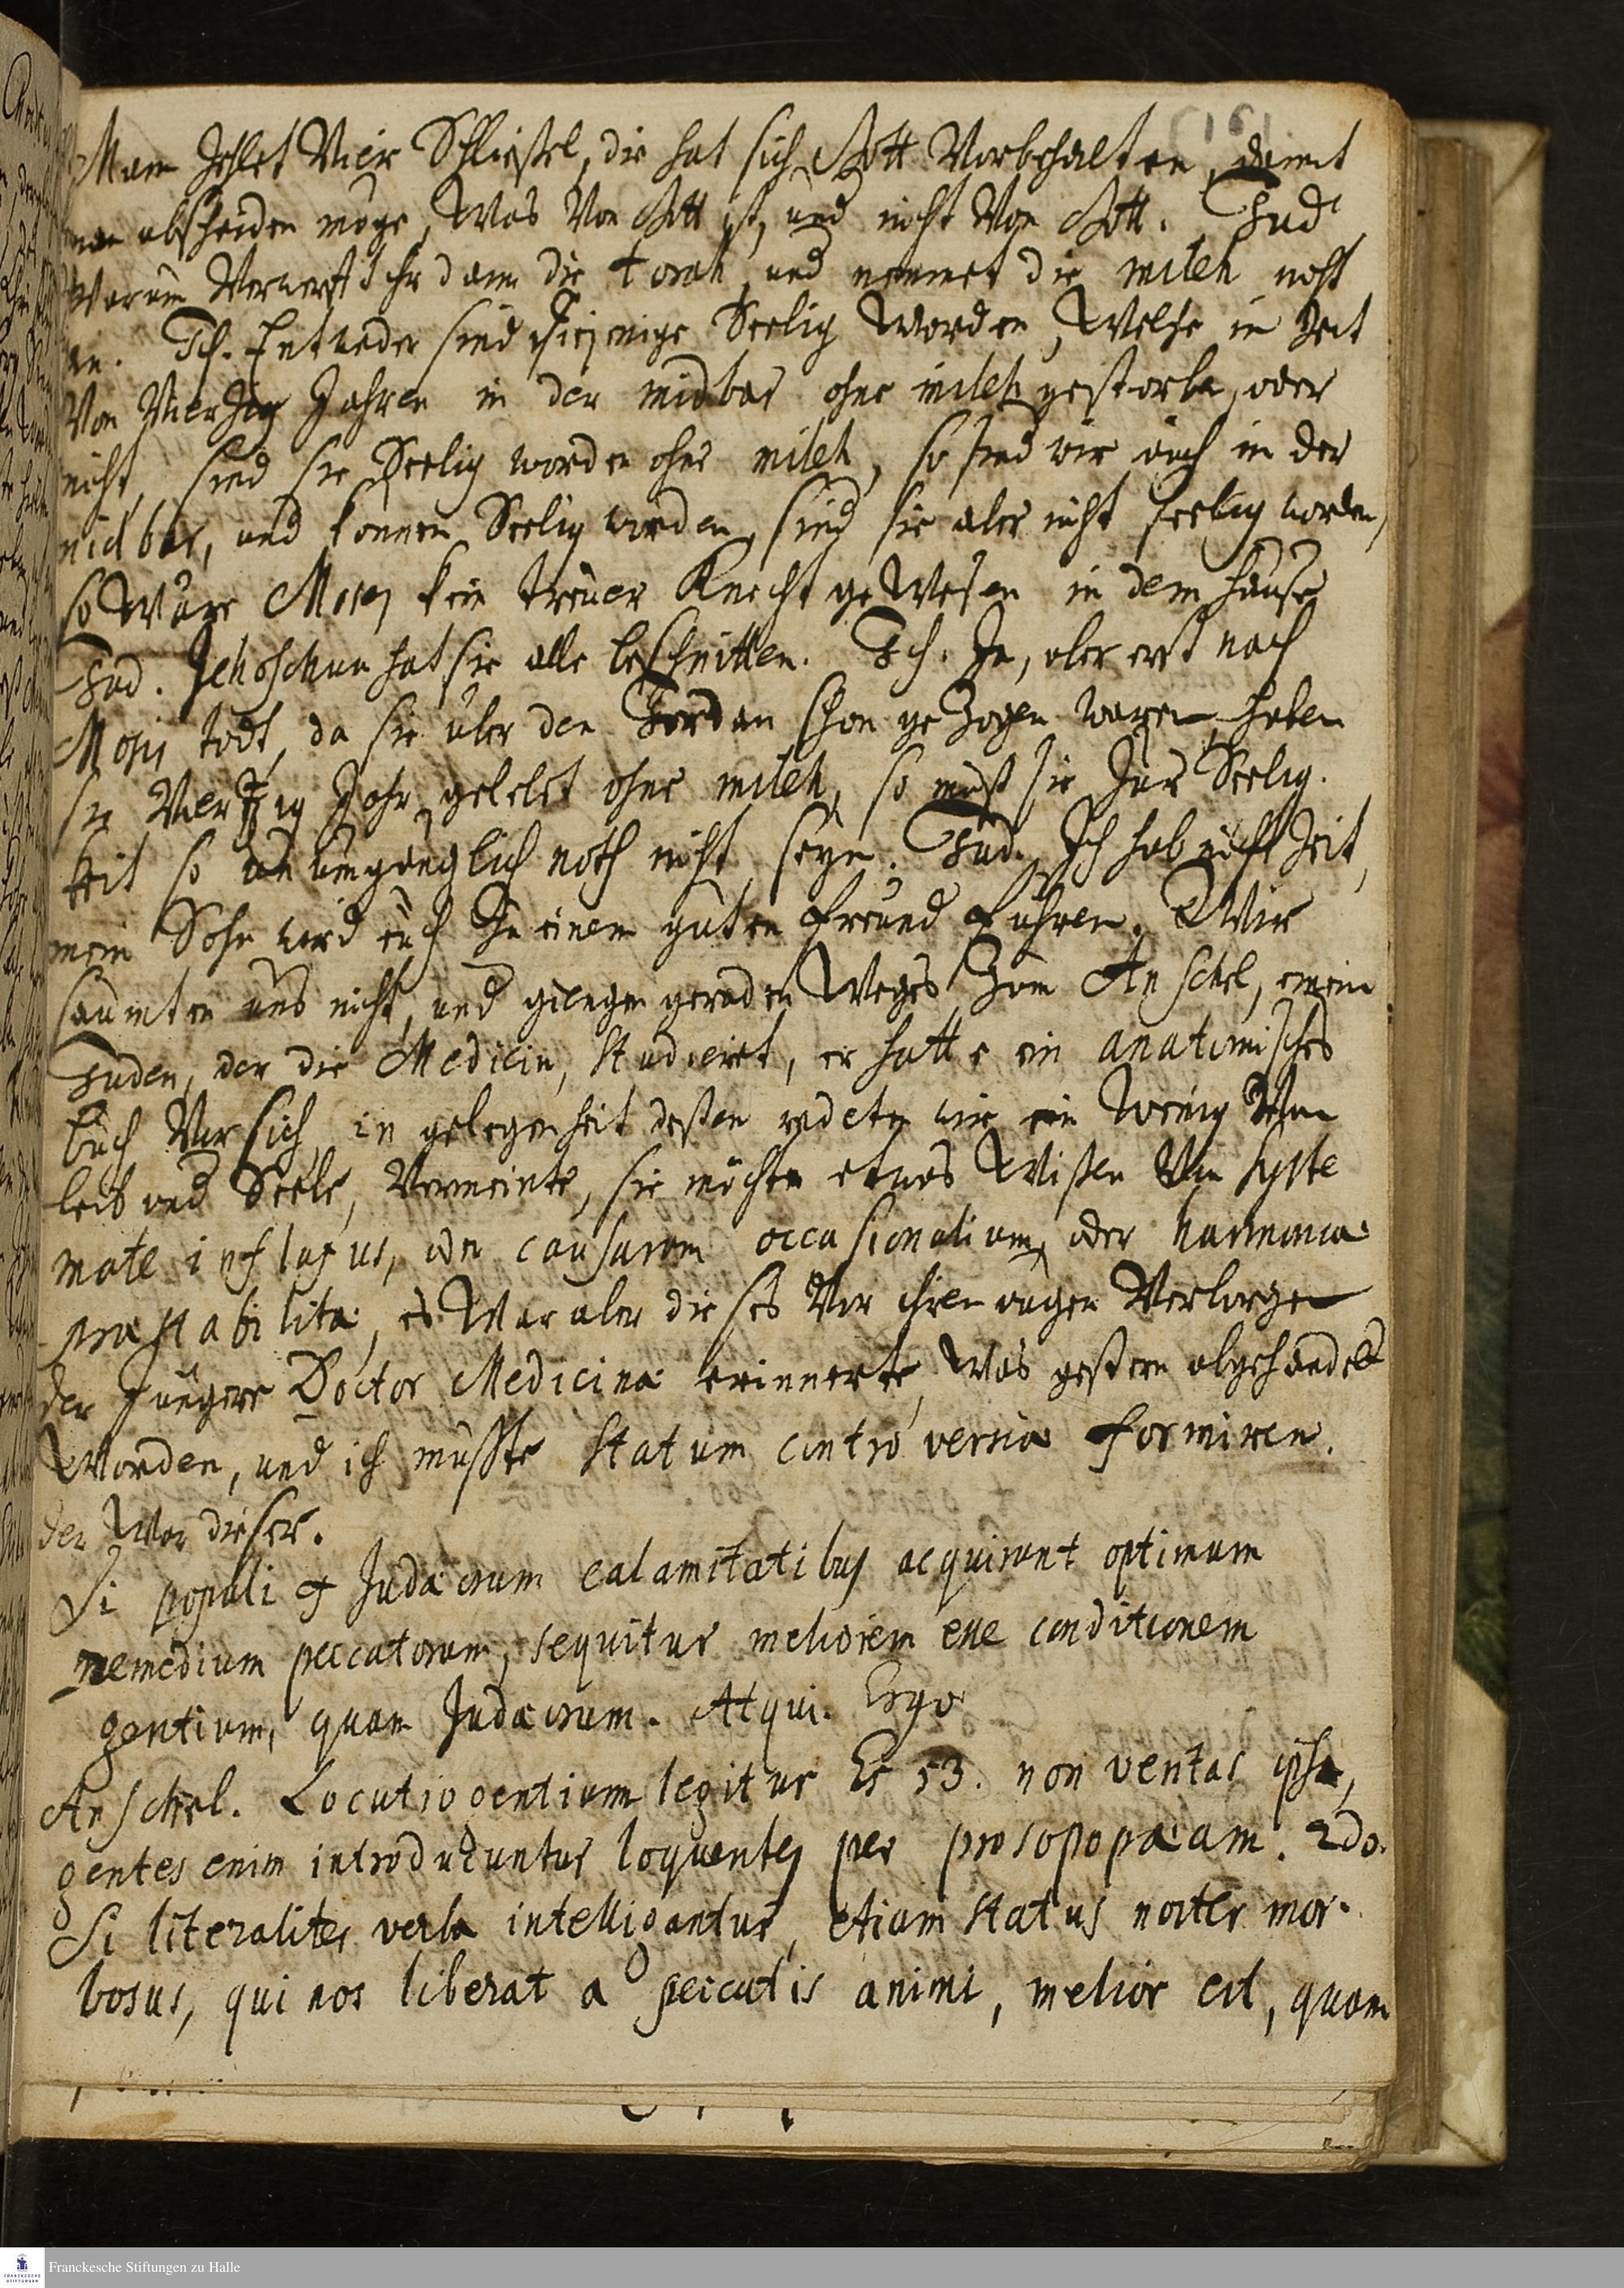 Man zehlet Vier Schließel, die hat sich Gott Vorbehalten, damit
man abscheiden möge, Was Von Gott ist, und nicht Von Gott. Jud
Warum Verwerft ihr dann die torah, und nemmet die mileh nicht
an. Ich. Entweder sind diejenige Seelig Worden, Welche in Zeit
Von Vierzig Jahren in der midbar ohne mileh gestorben, oder
nicht, sind sie Seelig worden ohne mileh, so sind wir auch in der
midbar, und konnen Seelig werden, sind sie aber nicht seelig worden,
so Wäre Moses kein treuer Knecht geWesen in dem Hause
Jud. Jehoschua hat sie alle beschnitten. Ich. Ja, aber erst nach
Mosis todt, da sie über den Jordan schon gezogen waren, haben
sie Viertzig Jahr gelebet ohne mileh, so muß sie zur Seelig-
keit so unumgänglich noth nicht seyn. Jud. Ich hab nicht Zeit,
mein Sohn wird euch zu einem guten freund führen. Wir
saumten uns nicht, und giengen geraden Weges zum Anschel, einem
Juden, der die Medicin, studieret, er hatte ein anatomisches
buch Vor sich, in gelegenheit deßen redeten wir ein Wenig Von
leib und Seele, Vermeinte, sie möchten etwas Wißen Von syste
mate influxus, oder causarum occasionalium, oder harmonia
præstabilita, es War aber dieses Vor ihren augen Verborgen
der Jüngere Doctor Medicinæ erinnerte, Was gestern abgehandelt
Worden, und ich mußte statum controversiæ formiren.
der War dieser.
Si populi ex Judæorum calamitatibus acquirunt optimum
remedium peccatorum, sequitur meliorem esse conditionem
gentium, quam Judæorum. Atqui. Ergo
Anschel. Locutio gentium legitur Es 53. non veritas ipsa,
gentes enim introducuntur loquentes per prosopopæiam. 2do.
Si literaliter verba intelligantur, etiam status noster mor-
bosus, qui nos liberat a peccatis animi, melior est, quam
Franckesche Stiftungen zu Halle